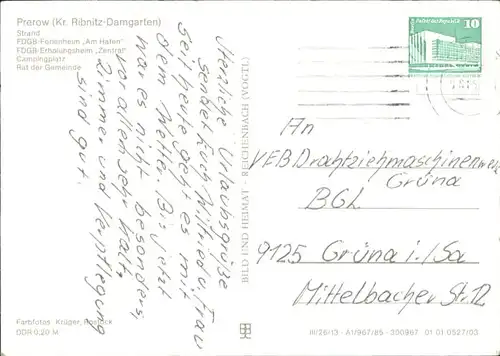 Prerow (Kr. Ribnitz-Damgarten)
Strand
FDGB-Ferienheim „Am Hafen"
FDGB-Erholungsheim „Zentral"
Campingplatz
Rat der Gemeinde
Herzliche Urlaubsgrüße
sendet Euch Wilfried u. Frau
Seit heute geht es mit
dem Wetter. Bis jetzt
war es nicht besonders,
vor allem sehr kalt,
Zimmer und Verpflegung
sind gut.
Farbfotos: Krüger, Rostock
DDR 0,20 M
BILD UND HEIMAT · REICHENBACH (VOGTL)
10
An
VEB Drahtziehmaschinenwerk
Grüna
BGL
9125 Grüna i./Sa
Mittelbacher Str. 12
III/26/13 · A1/967/85 · 300967 01 01 0527/03